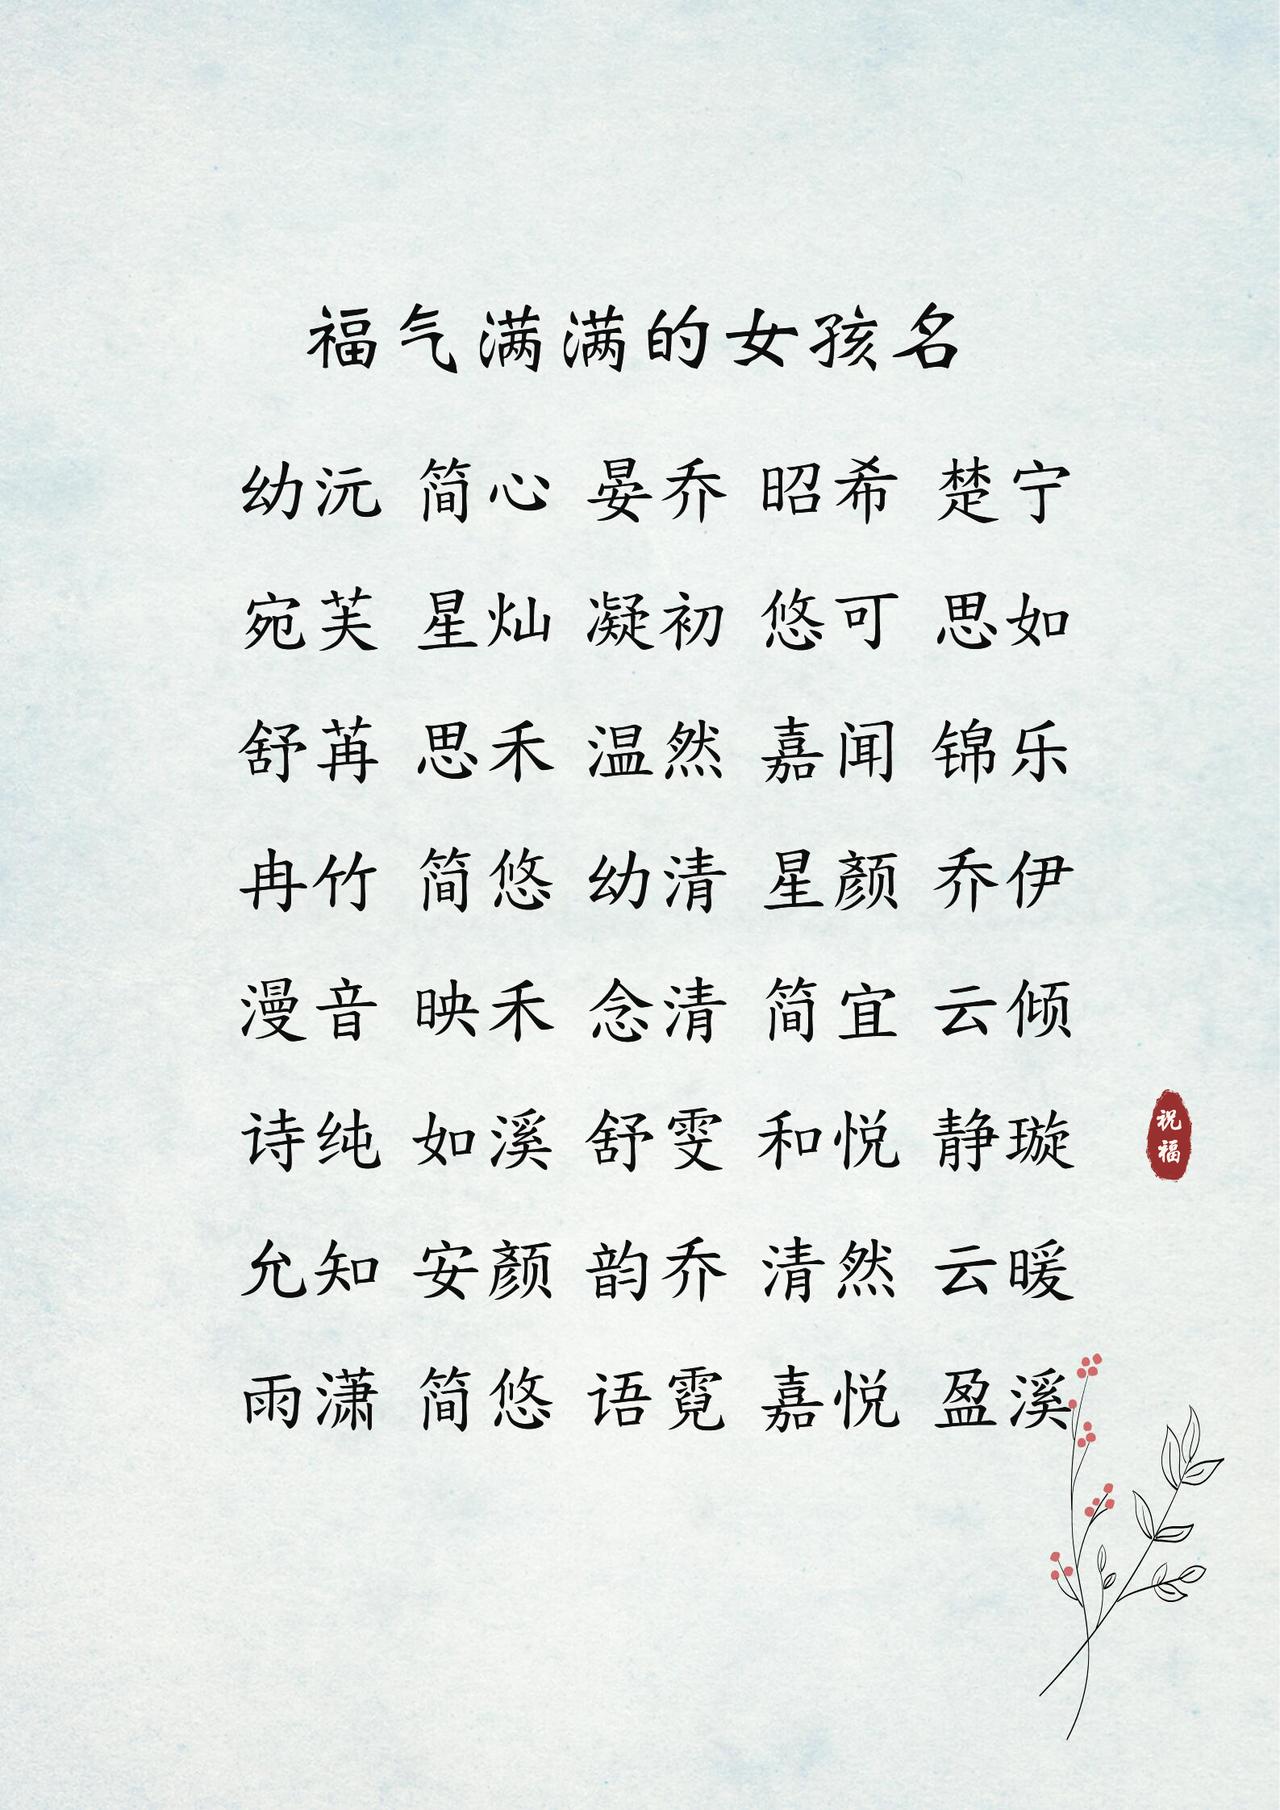 福气满满的女孩名
幼沅 简心 晏乔 昭希 楚宁
宛芙 星灿 凝初 悠可 思如
舒苒 思禾 温然 嘉闻 锦乐
冉竹 简悠 幼清 星颜 乔伊
漫音 映禾 念清 简宜 云倾
诗纯 如溪 舒雯 和悦 静璇
祝福
允知 安颜 韵乔 清然 云暖
雨潇 简悠 语霓 嘉悦 盈溪